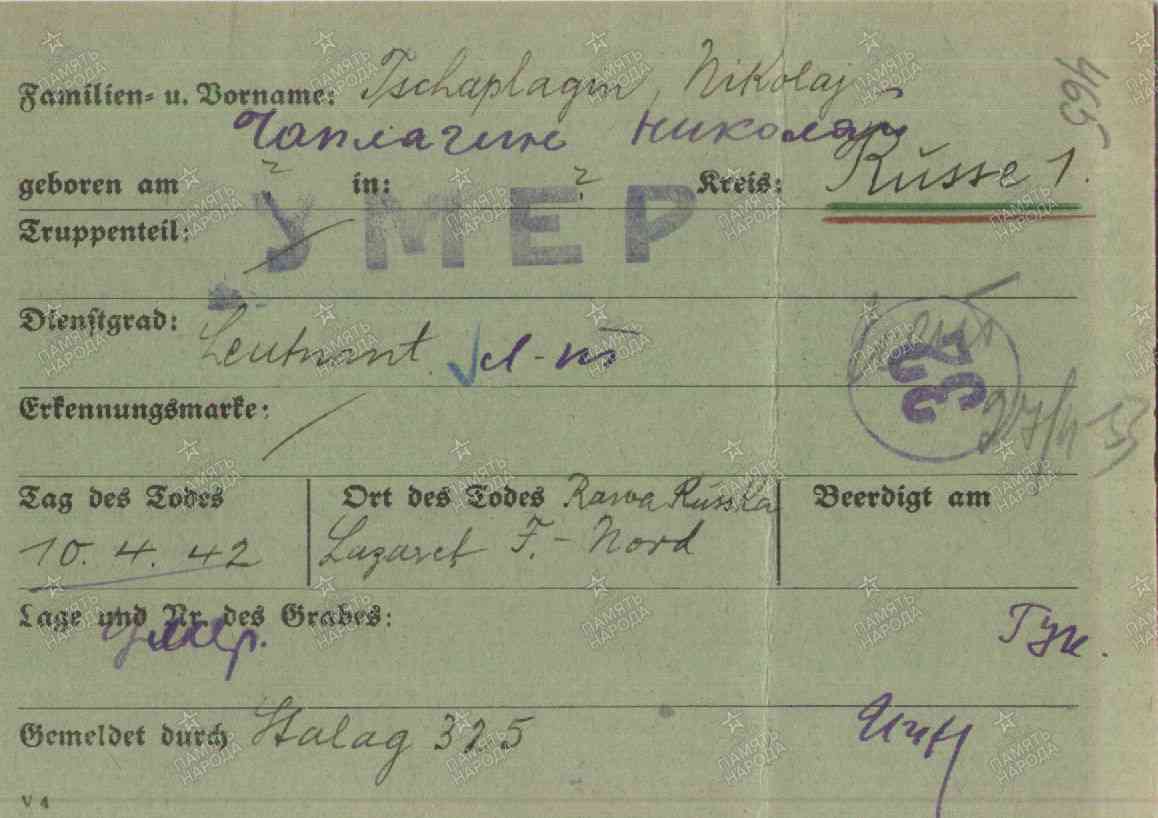 Familien- u. Vorname: Tschaplagin, Nikolaj
Чаплагин Николай
465
geboren am ? in: ? Kreis: Russe 1.
УМЕР
Truppenteil:
Dienstgrad: Leutnant. л-нт
32
27/II 53
Erkennungsmarke:
Tag des Todes
10. 4. 42
Ort des Todes Rawa Ruska
Lazaret F. - Nord
Beerdigt am
Lage und Nr. des Grabes:
умер.
Гук.
Gemeldet durch Stalag 325
V 4
ПАМЯТЬ НАРОДА